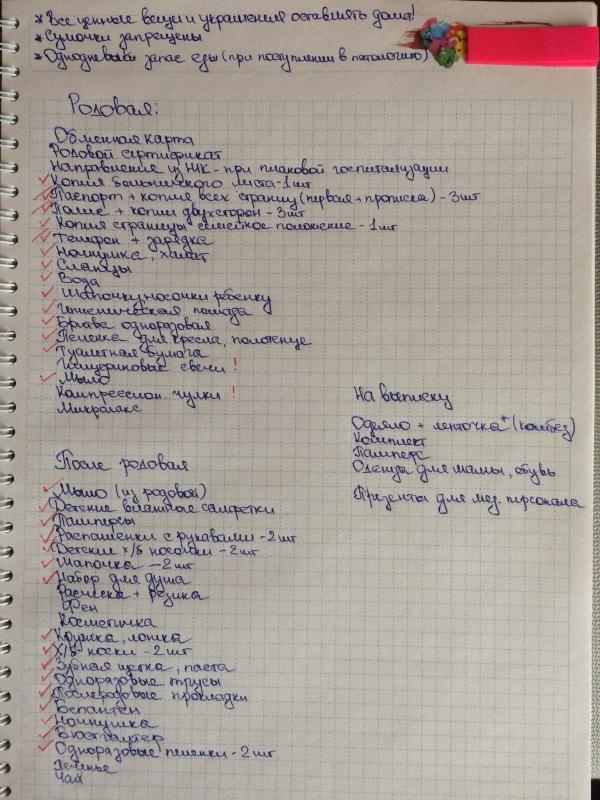 * Все ценные вещи и украшения оставлять дома!
* Сумочки запрещены
* Однодневный запас еды (при поступлении в патологию)
Родовая:
Обменная карта
Родовой сертификат
Направление из ЖК - при плановой госпитализации
Копия больничного листа - 1 шт
Паспорт + копия всех страниц (первая + прописка) - 3 шт
Полис + копии двухсторон - 3 шт
Копия страницы семейное положение - 1 шт
Телефон + зарядка
Ночнушка, халат
Сланцы
Вода
Шапочку, носочки ребенку
Гигиеническая помада
Бритва одноразовая
Пеленка для кресла, полотенце
Туалетная бумага
Глицериновые свечи !
Мыло
Компрессион. чулки !
Микролакс
На выписку
Одеяло + ленточка * (комбез)
Комплект
Памперс
Одежда для мамы, обувь
Презенты для мед. персонала
После родовая
Мыло (из родовой)
Детские влажные салфетки
Памперсы
Распашенки с рукавами - 2 шт
Детские х/б носочки - 2 шт
Шапочка - 2 шт
Набор для душа
Расческа + резинка
Фен
Косметичка
Кружка, ложка
Х/б носки - 2 шт
Зубная щетка, паста
Одноразовые трусы
Послеродовые прокладки
Бепантен
Ночнушка
Бюстгальтер
Одноразовые пеленки - 2 шт
Печенье
Чай